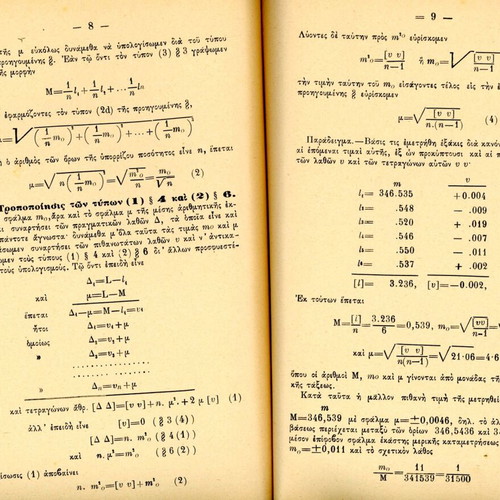 — 8 —
τῆς μ εὐκόλως δυνάμεθα νὰ ὑπολογίσωμεν διὰ τοῦ τύπου
προηγουμένης §. Ἐὰν τῷ ὄντι τὸν τύπον (3) § 3 γράψωμεν
μορφὴν
M=1/n l₁+1/n l₁+...1/n lₙ
ἐφαρμόζοντες τὸν τύπον (2d) τῆς προηγουμένης §,
=√(1/n m₀)²+(1/n m₀)²+...+(1/n m₀)²
ὁ ἀριθμὸς τῶν ὅρων τῆς ὑπορρίζου ποσότητος εἶνε n, ἕπεται
μ=√n(1/n m₀)²=√m²₀/n=m₀/√n (2)
Τροποποίησις τῶν τύπων (1) § 4 καὶ (2) § 6.
σφάλμα m₀, ἄρα καὶ τὸ σφάλμα μ τῆς μέσης ἀριθμητικῆς ἐκ-
συναρτήσει τῶν πραγματικῶν λαθῶν Δ, τὰ ὁποῖα εἶνε καὶ
πάντοτε ἄγνωστα· δυνάμεθα μ' ὅλα ταῦτα τὰς τιμὰς m₀ καὶ μ
συναρτήσει τῶν πιθανωτάτων λαθῶν υ καὶ ν' ἀντικα-
τοὺς τύπους (1) § 4 καὶ (2) § 6 δι' ἄλλων προσφυεστέ-
τοὺς ὑπολογισμούς. Τῷ ὄντι ἐπειδὴ εἶνε
Δ₁=L—l₁
καὶ μ=L—M
ἕπεται Δ₁—μ=M—l₁=υ₁
ἤτοι Δ₁=υ₁+μ
ὁμοίως Δ₂=υ₂+μ
» Δ₃=υ₃+μ
..............
..............
» Δₙ=υₙ+μ
καὶ τετραγώνων ἀθρ. [Δ Δ]=[υ υ]+n. μ²+2 μ [υ] (1)
ἀλλ' ἐπειδὴ εἶνε [υ]=0 (§ 3 (4))
[Δ Δ]=n. m²₀ (§ 4 (1))
καὶ n. μ²=m²₀ (§ 6 (2))
(1) ἀποβαίνει
n. m²₀=[υ υ]+m²₀ (2)
— 9 —
Λύοντες δὲ ταύτην πρὸς m²₀ εὑρίσκομεν
m²₀=[υ υ]/n—1 ἢ m₀=√[υ υ]/n—1
τὴν τιμὴν ταύτην τοῦ m₀ εἰσάγοντες τέλος εἰς τὴν
προηγουμένης § εὑρίσκομεν
μ=√[υ υ]/n.(n—1) (4)
Παράδειγμα.—Βάσις τις ἐμετρήθη ἑξάκις διὰ κανόν
αἱ ἑπόμεναι τιμαὶ αὐτῆς, ἐξ ὧν προκύπτουσι καὶ αἱ
τῶν λαθῶν υ καὶ τῶν τετραγώνων αὐτῶν υ²:
m υ
l₁= 346.535 +0.004
l₂= .548 — .009
l₃= .520 + .019
l₄= .546 — .007
l₅= .550 — .011
l₆= .537 + .002
[l]= 3.236, [υ]=—0.002,
Ἐκ τούτων ἕπεται
M=[l]/n=3.236/6=0,539, m₀=√[υυ]/n—1
καὶ μ=√[υ υ]/n(n—1)=√21·06=4·6
ὅπου οἱ ἀριθμοὶ M, m₀ καὶ μ γίνονται ἀπὸ μονάδας τῆς
κῆς τάξεως.
Κατὰ ταῦτα ἡ μᾶλλον πιθανὴ τιμὴ τῆς μετρηθεί
m
M=346,539 μὲ σφάλμα μ=±0,0046, δηλ. τὸ ἀλ
βάσεως περιέχεται μεταξὺ τῶν ὁρίων 346,5436 καὶ 34
μέσον ἐπίφοβον σφάλμα ἑκάστης μερικῆς καταμετρήσεως
m₀=±0,011 καὶ τὸ σχετικὸν λάθος
m₀/M=11/341539=1/31500